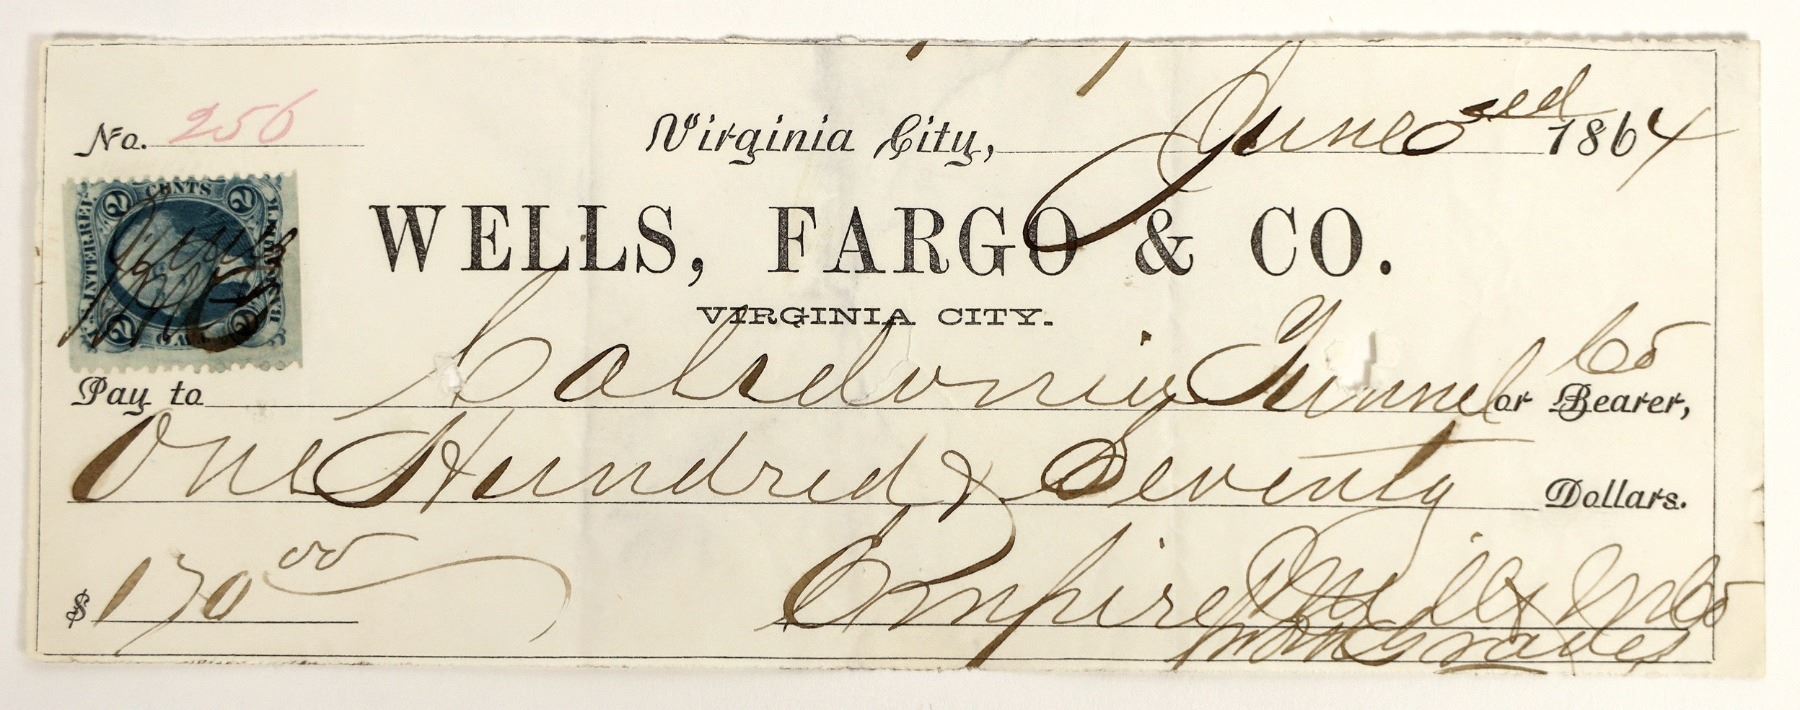 No. 256
Virginia City, June 3ed 1864
WELLS, FARGO & CO.
VIRGINIA CITY.
2 CENTS 2
U.S. INTER. REV.
BANK CHECK
2 2
Pay to Caledonia Tunnel Co or Bearer,
One Hundred & Seventy Dollars.
$ 170 00 Empire Mill & M Co